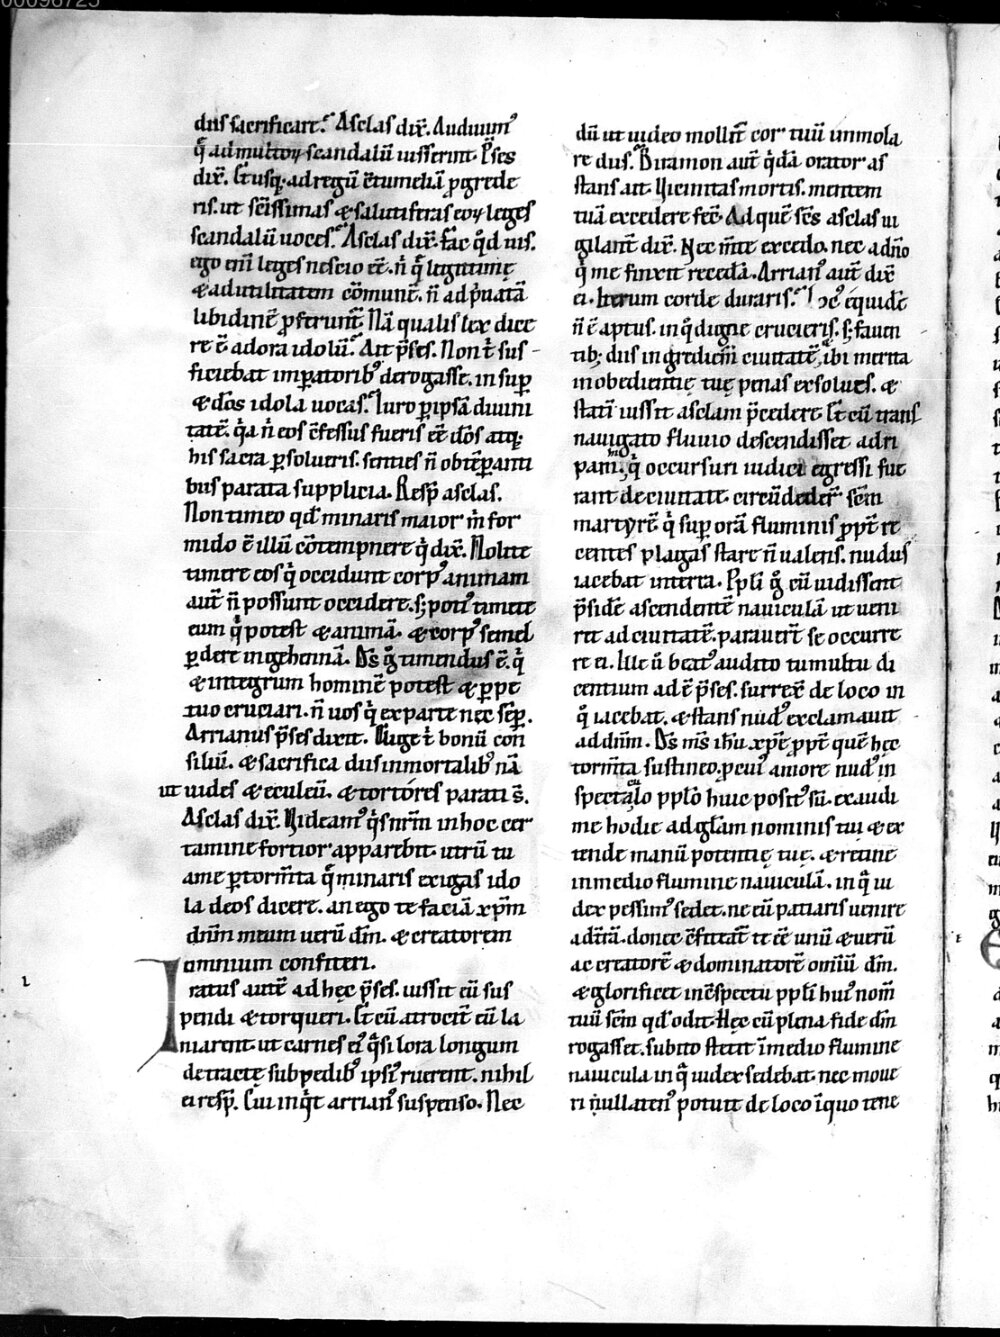 diis sacrificare. Asclas dix̄. Audiuim᷒
q̄ ad multoꝝ scandalū iusserint. P̄ses
dix̄. Et usq; ad regū c̄tumeliā ꝓgrede
ris. ut sc̄issimas & salutiferas eoꝝ leges
scandalū uoces. Asclas dix̄. fac qd̄ uis.
ego eni leges nescio ēē. n̄ q̄ legittimę
& ad utilitatem cōmunē. n̄ ad p̄uatā
libidinē ꝓferunt̄. Nā qualis lex dice
re ē adora idolū. Ait p̄ses. Non t̄ suf
ficiebat impatorib᷒ derogasse. insup
& dōs idola uocas. Iuro p̱ ipsā diuini
tatē. qa n̄ eos c̄fessus fueris eē dōs atq;
his sacra p̱solueris. senties n̄ obtēp̱anti
bus parata supplicia. Resp̄ asclas.
Non timeo qd̄ minaris maior m̄ for
mido ē illū cōtempnere q̄ dix̄. Nolite
timere eos q̄ occidunt corp᷒ animam
aut̄ n̄ possunt occidere. s; poti᷒ timete
eum q̄ potest & animā. & corp᷒ semel
p̱dere in gehennā. D̄s ḡ timendus ē. q̄
& integrum hominē potest & p̱pe
tuo cruciari. n̄ uos q̄ ex parte nec sēp̱.
Arrianus p̄ses dixit. Auge t̄ bonū con
siliū. & sacrifica diis inmortalib᷒ nā
ut uides & eculeū. & tortores parati s̄.
Asclas dix̄. Videam᷒ q̄s nr̄m in hoc cer
tamine fortior apparebit. utrū tu
a me p̱ torm̄ta q̄ minaris exigas ido
la deos dicere. an ego te faciā xp̄m
dn̄m meum uerū dm̄. & creatorem
omnium confiteri.
Iratus autē ad hęc p̄ses. iussit eū sus
pendi & torqueri. Et cū atrocit̄ eū la
niarent. ut carnes ei᷒ q̄si lora longum
detractę sub pedib᷒ ipsi᷒ ruerent. nihil
ei resp̄. Cui inq̄t arrian᷒ suspenso. Nec
dū ut uideo mollit̄ cor tuū immola
re diis. Biramon aut̄ q̄dā orator as
stans ait. Vicinitas mortis. mentem
tuā excedere fec̄. Ad quē sc̄s asclas ui
gilant̄ dix̄. Nec m̄te excedo. nec a dn̄o
q̄ me finxit recedā. Arrian᷒ aut̄ dix̄
ei. Iterum corde duraris. Hoc equidē
n̄ ē aptus. in q̄ digne crucieris. s; fauen
tib; diis ingrediem̄ ciuitatē, ibi merita
inobedientię tuę penas exsolues. &
statī iussit asclam p̄cedere. Et cū trans
nauigato fluuio descendisset a dri
pani. q̄ occursuri iudici egressi fue
rant de ciuitate. circūdeder̄ sc̄m
martyrē q̄ sup̱ orā fluminis ꝓpt̄ re
centes plagas stare n̄ ualens. nudus
iacebat in terra. Ppl̄i ḡ cū uidissent
p̄sidē ascendentē nauiculā ut ueni
ret ad ciuitatē. parauer̄t se occurre
re ei. Ille ū beat᷒ audito tumultu di
centium adē p̄ses. surrex̄ de loco in
q̄ iacebat. & stans nud᷒ exclamauit
ad dn̄m. D̄s m̄s ihū xp̄e ꝓpt̄ quē hęc
torm̄ta sustineo, p̱ cui᷒ amore nud᷒ in
spectaculo pplo huic posit᷒ sū. exaudi
me hodie ad gl̄am nominis tui & ex
tende manū potentię tuę. & retine
in medio flumine nauiculā. in q̄ iu
dex pessim᷒ sedet. ne eū patiaris uenire
ad t̄rā. donec c̄fiteat̄ te eē unū & uerū
ac creatorē & dominatorē omīū dm̄.
& glorificet in c̄spectu ppl̄i hui᷒ nom̄
tuū sc̄m qd̄ odit. Hęc cū plena fide dm̄
rogasset. subito stetit ī medio flumine
nauicula in q̄ iudex sedebat. nec moue
ri n̄ullaten᷒ potuit de loco ī quo tene